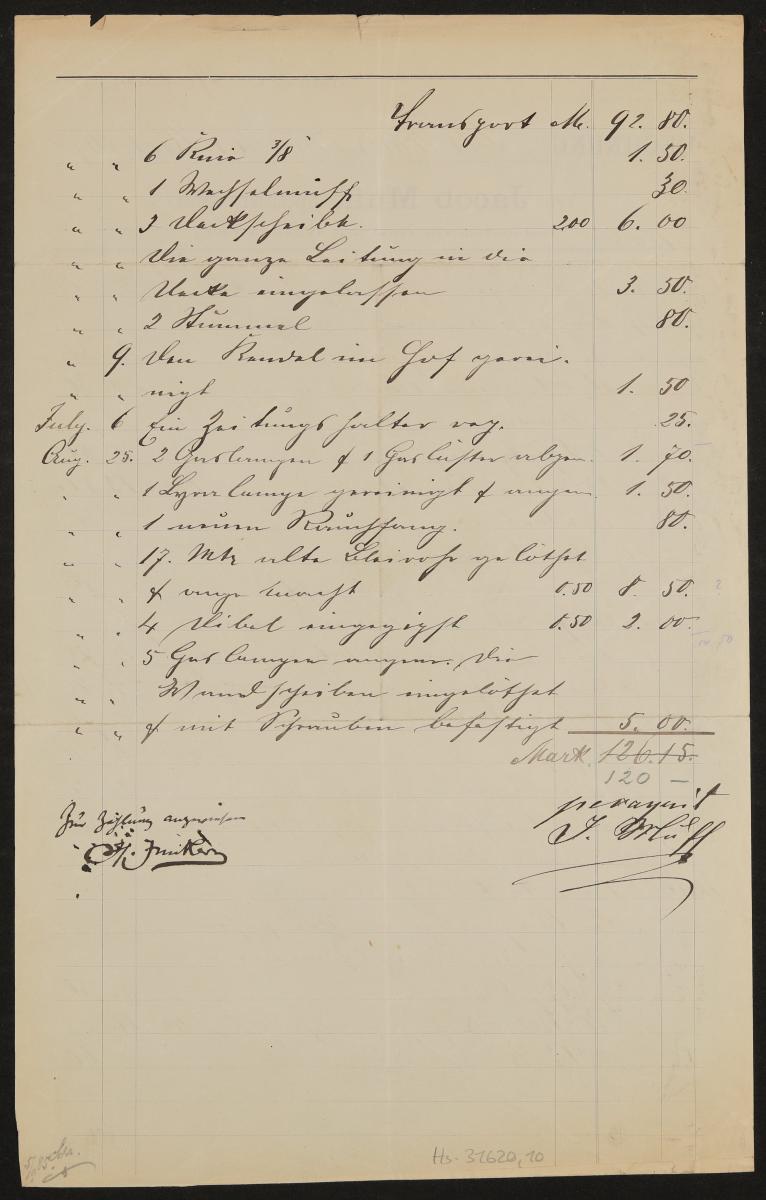 Transport M. 92. 80.
" " 6 Knie 3/8" 1. 50.
" " 1 Wechselmuff 30.
" " 3 Deckscheibe. 2,00 6. 00
" " Die ganze Leitung in die
" " Decke eingelassen 3. 50.
" " 2 Stummel 80.
" 9. Den Kendel im Hof gerei-
" " nigt 1. 50
July. 6 Ein Zeitungshalter rep. 25.
Aug. 25. 2 Gaslampen & 1 Gaslüster abgen. 1. 70.
" " 1 Lyralampe gereinigt & angem. 1. 50.
" " 1 neuen Rauchfang. 80.
" " 17. Mtr alte Bleirohr gelöthet
" " & ange macht 0.50 8. 50. ?
" " 4 Dibel eingegipst 0.50 2. 00.
" " 5 Gaslampen angem. Die
" " Wandscheiben eingelöthet
" " & mit Schrauben befestigt 5. 00.
Mark. 126.15.
120 —
Zur Zahlung angewiesen
J. Muff
Hs. 31620,10